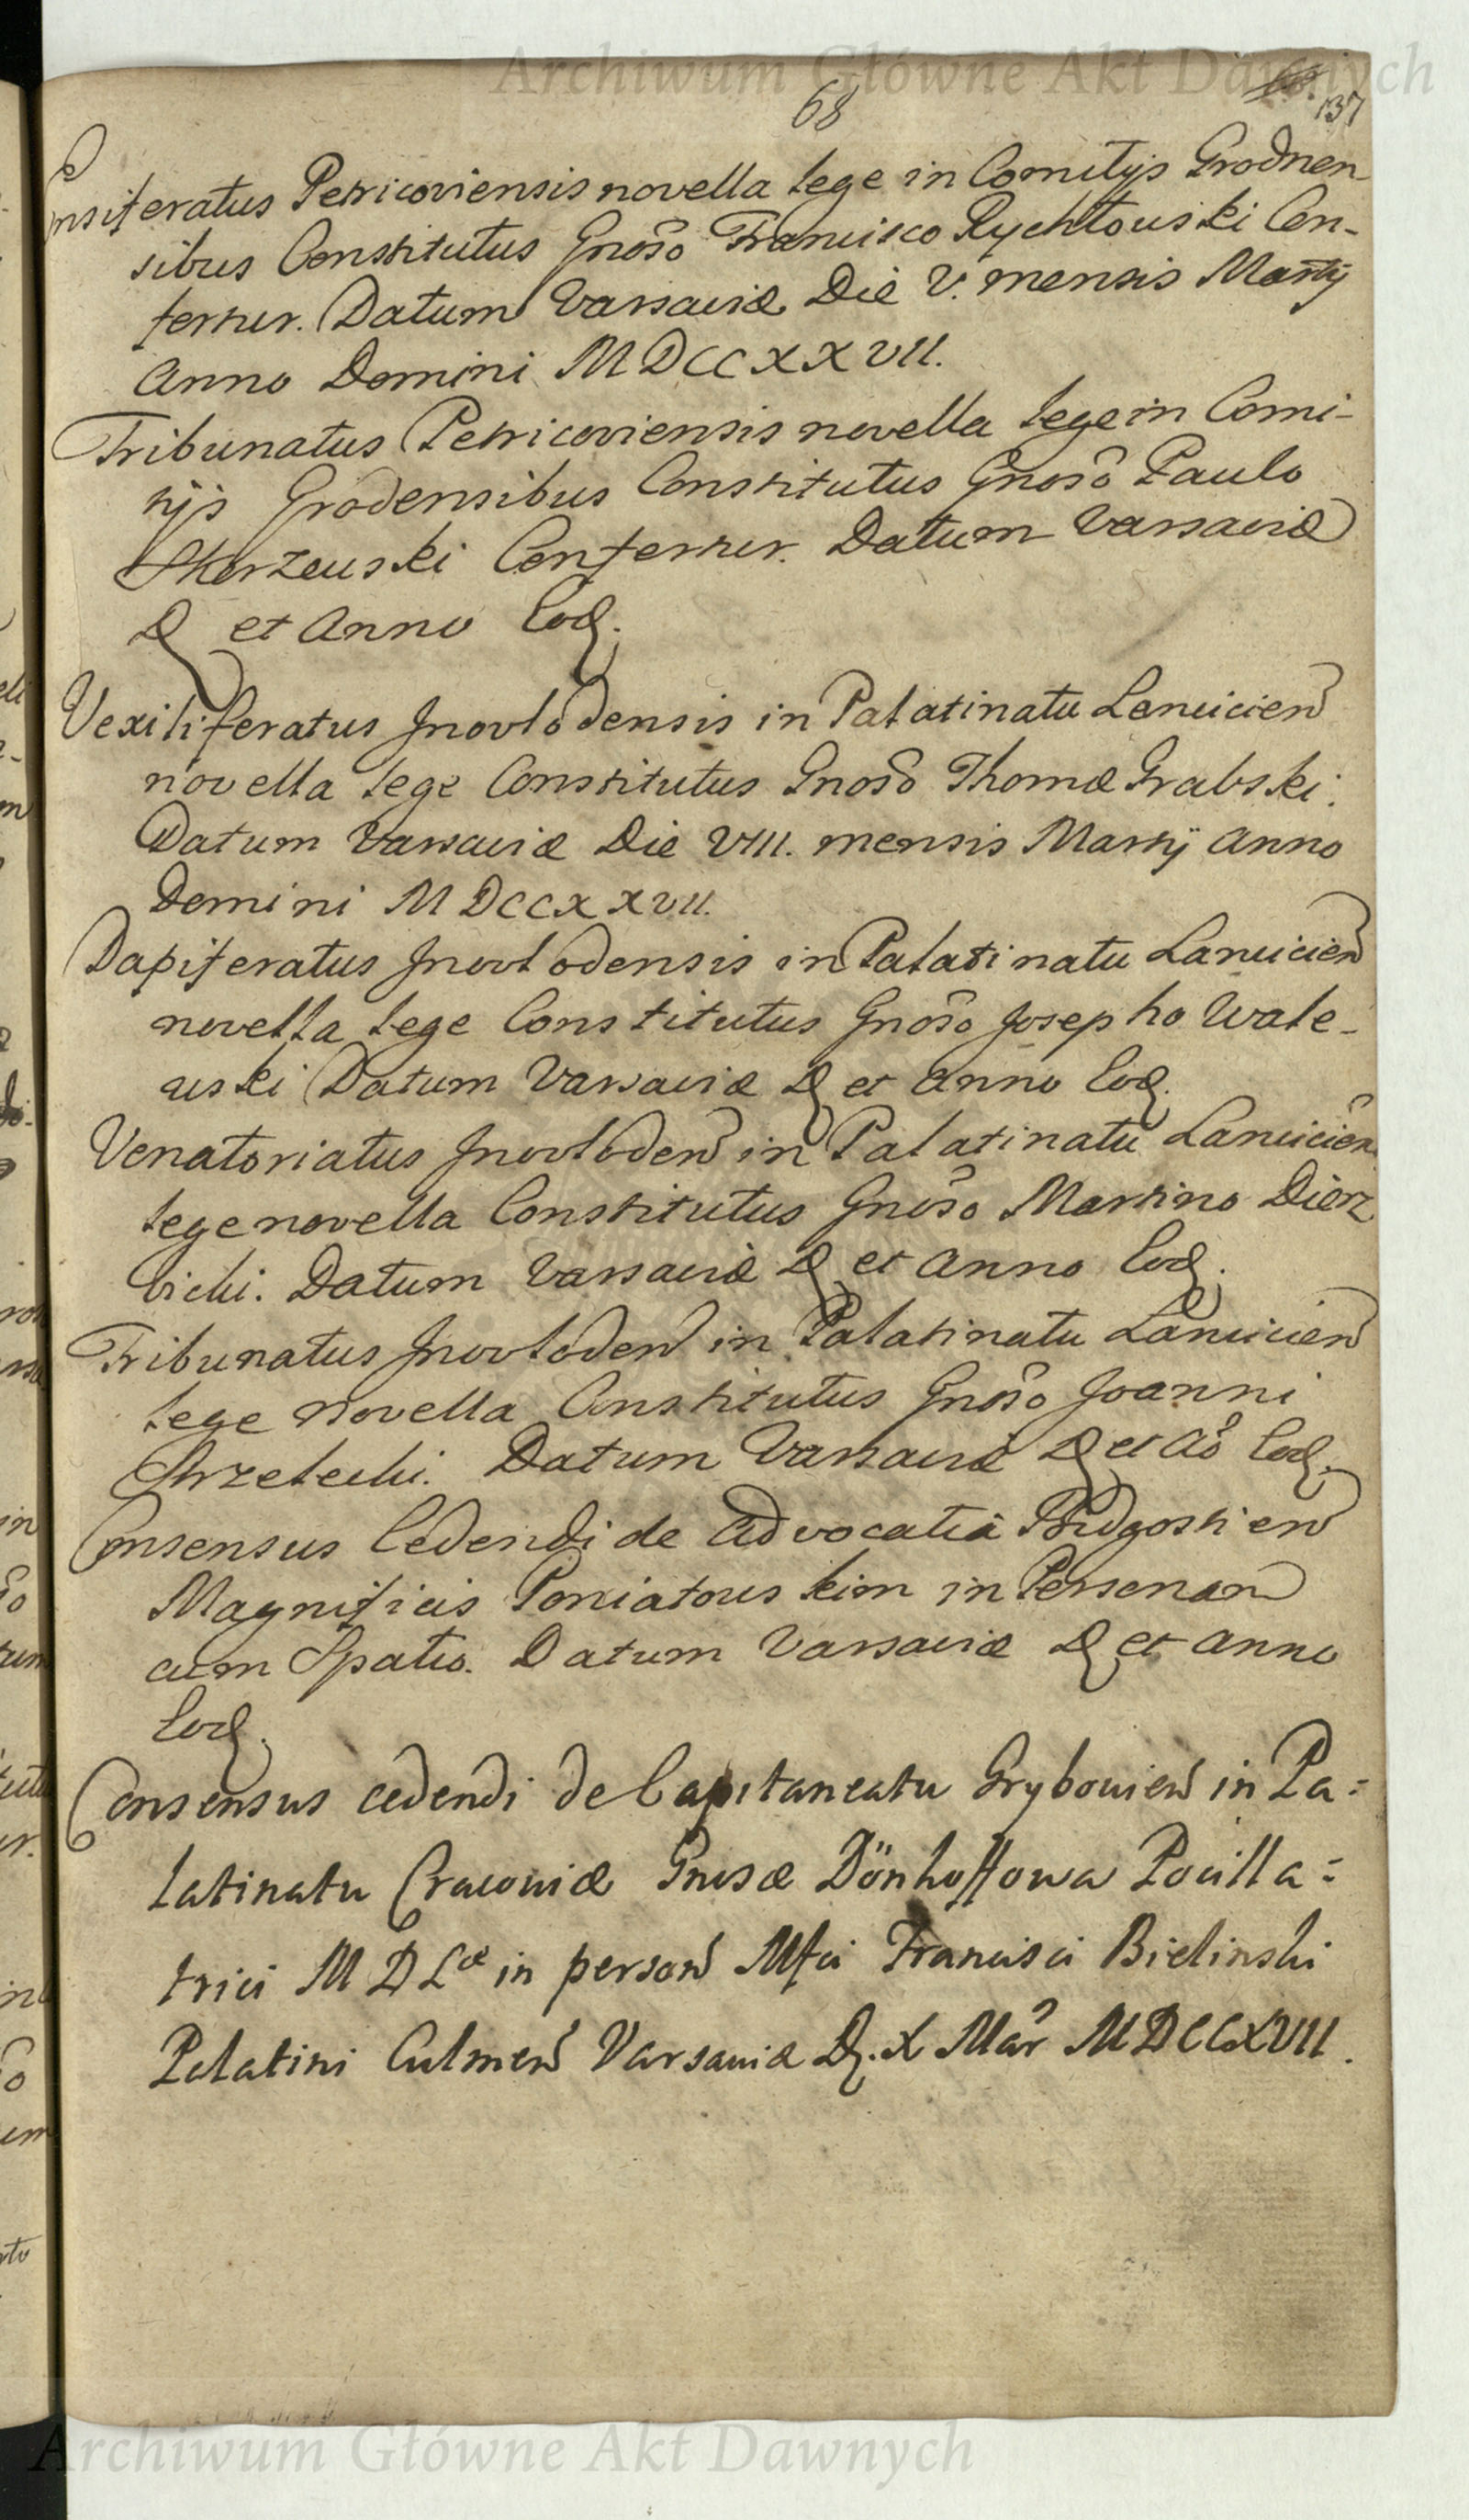 Archiwum Główne Akt Dawnych
68
137
Ensiferatus Petricoviensis novella lege in Comitijs Grodnen
sibus Constitutus Gnoso Francisco Rychlouski Con-
fertur. Datum Varsaviæ Die V. mensis Martij
Anno Domini MDCCXXVII.
Tribunatus Petricoviensis novella lege in Comi-
tijs Grodensibus Constitutus Gnoso Paulo
Skorzeuski Confertur. Datum Varsaviæ
D et Anno Eod.
Vexiliferatus Jnovlodensis in Palatinatu Lencicien
novella lege Constitutus Gnoso Thomæ Grabski.
Datum Varsaviæ Die VIII. mensis Martij Anno
Domini MDCCXXVII.
Dapiferatus Jnovlodensis in Palatinatu Lancicien
novella lege Constitutus Gnoso Josepho Wale-
uski Datum Varsaviæ D et Anno Eod.
Venatoriatus Jnovloden in Palatinatu Lancicien
lege novella Constitutus Gnoso Martino Dierz
bicki. Datum Varsaviæ D et Anno Eod.
Tribunatus Jnovloden in Palatinatu Lancicien
lege novella Constitutus Gnoso Joanni
Strzelecki. Datum Varsaviæ D et Ao Eod.
Consensus Cedendi de Advocatia Bydgostien
Magnificis Poniatouskim in Personam
cum Spatio. Datum Varsaviæ D et Anno
Eod.
Consensus cedendi de Capitaneatu Grybouien in Pa=
latinatu Cracouiæ Gnosæ Dönhoffowa Pocilla=
trici M D Læ in person Mfci Francisci Bielinski
Palatini Culmen Varsauiæ D. X Mar MDCCXVII.
Archiwum Główne Akt Dawnych